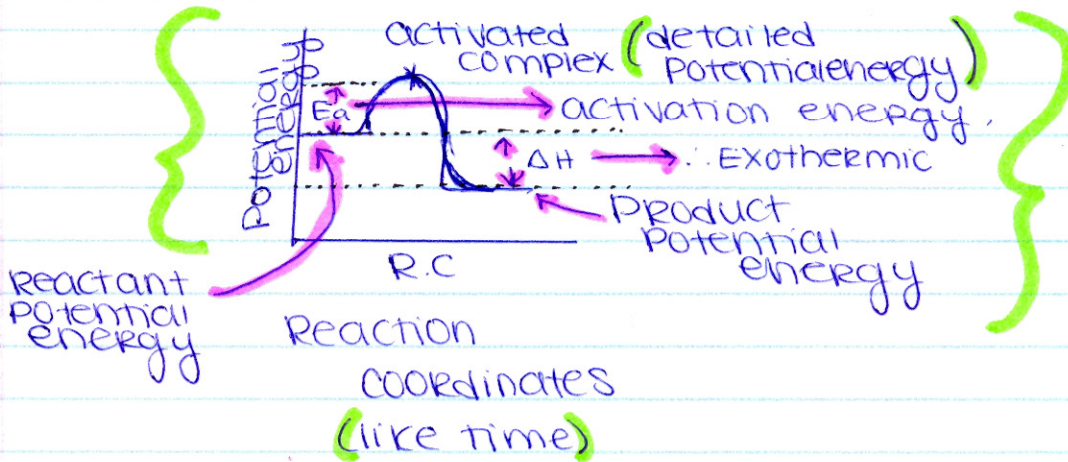 Potential
energy
activated
complex
(detailed
potential energy)
Ea
activation energy.
ΔH
∴ Exothermic
Product
Potential
energy
R.C
Reactant
potential
energy
Reaction
coordinates
(like time)